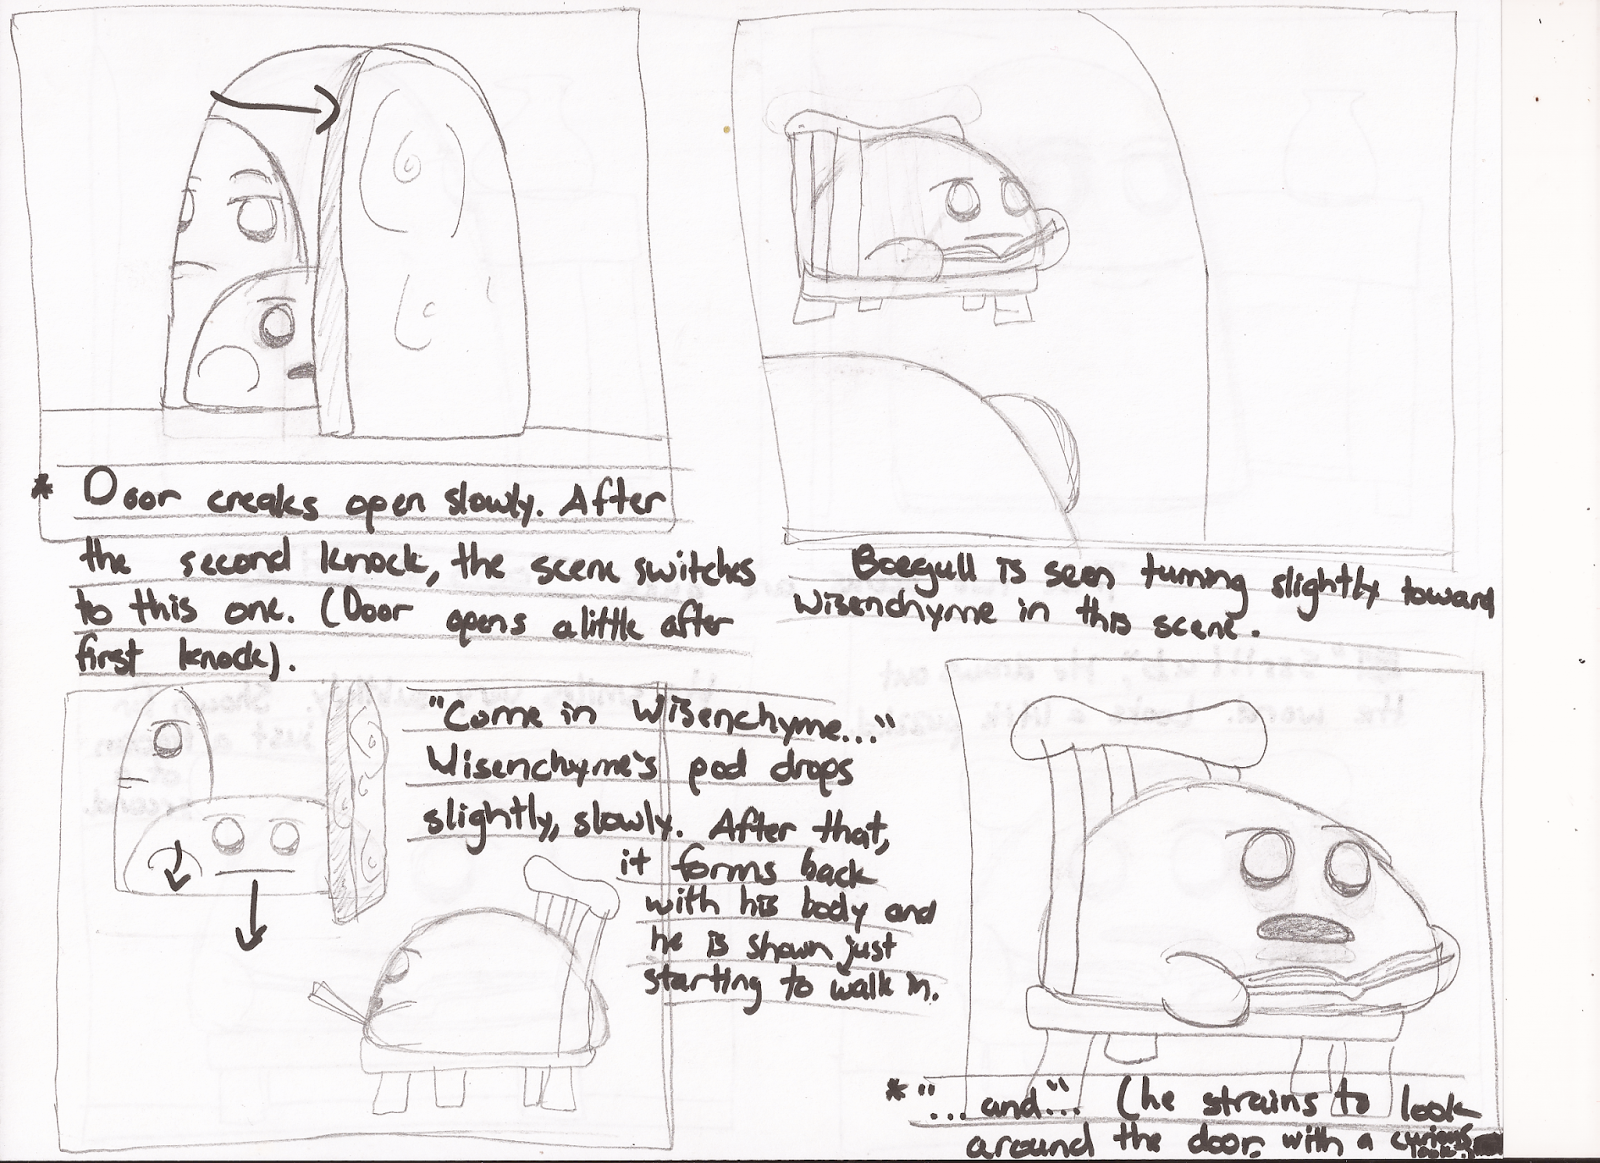 * Door creaks open slowly. After
the second knock, the scene switches
to this one. (Door opens a little after
first knock).
Boegull is seen turning slightly toward
Wisenchyme in this scene.
"Come in Wisenchyme..."
Wisenchyme's pod drops
slightly, slowly. After that,
it forms back
with his body and
he is shown just
starting to walk in.
* "...and"... (he strains to look
around the door, with a curious
look.)